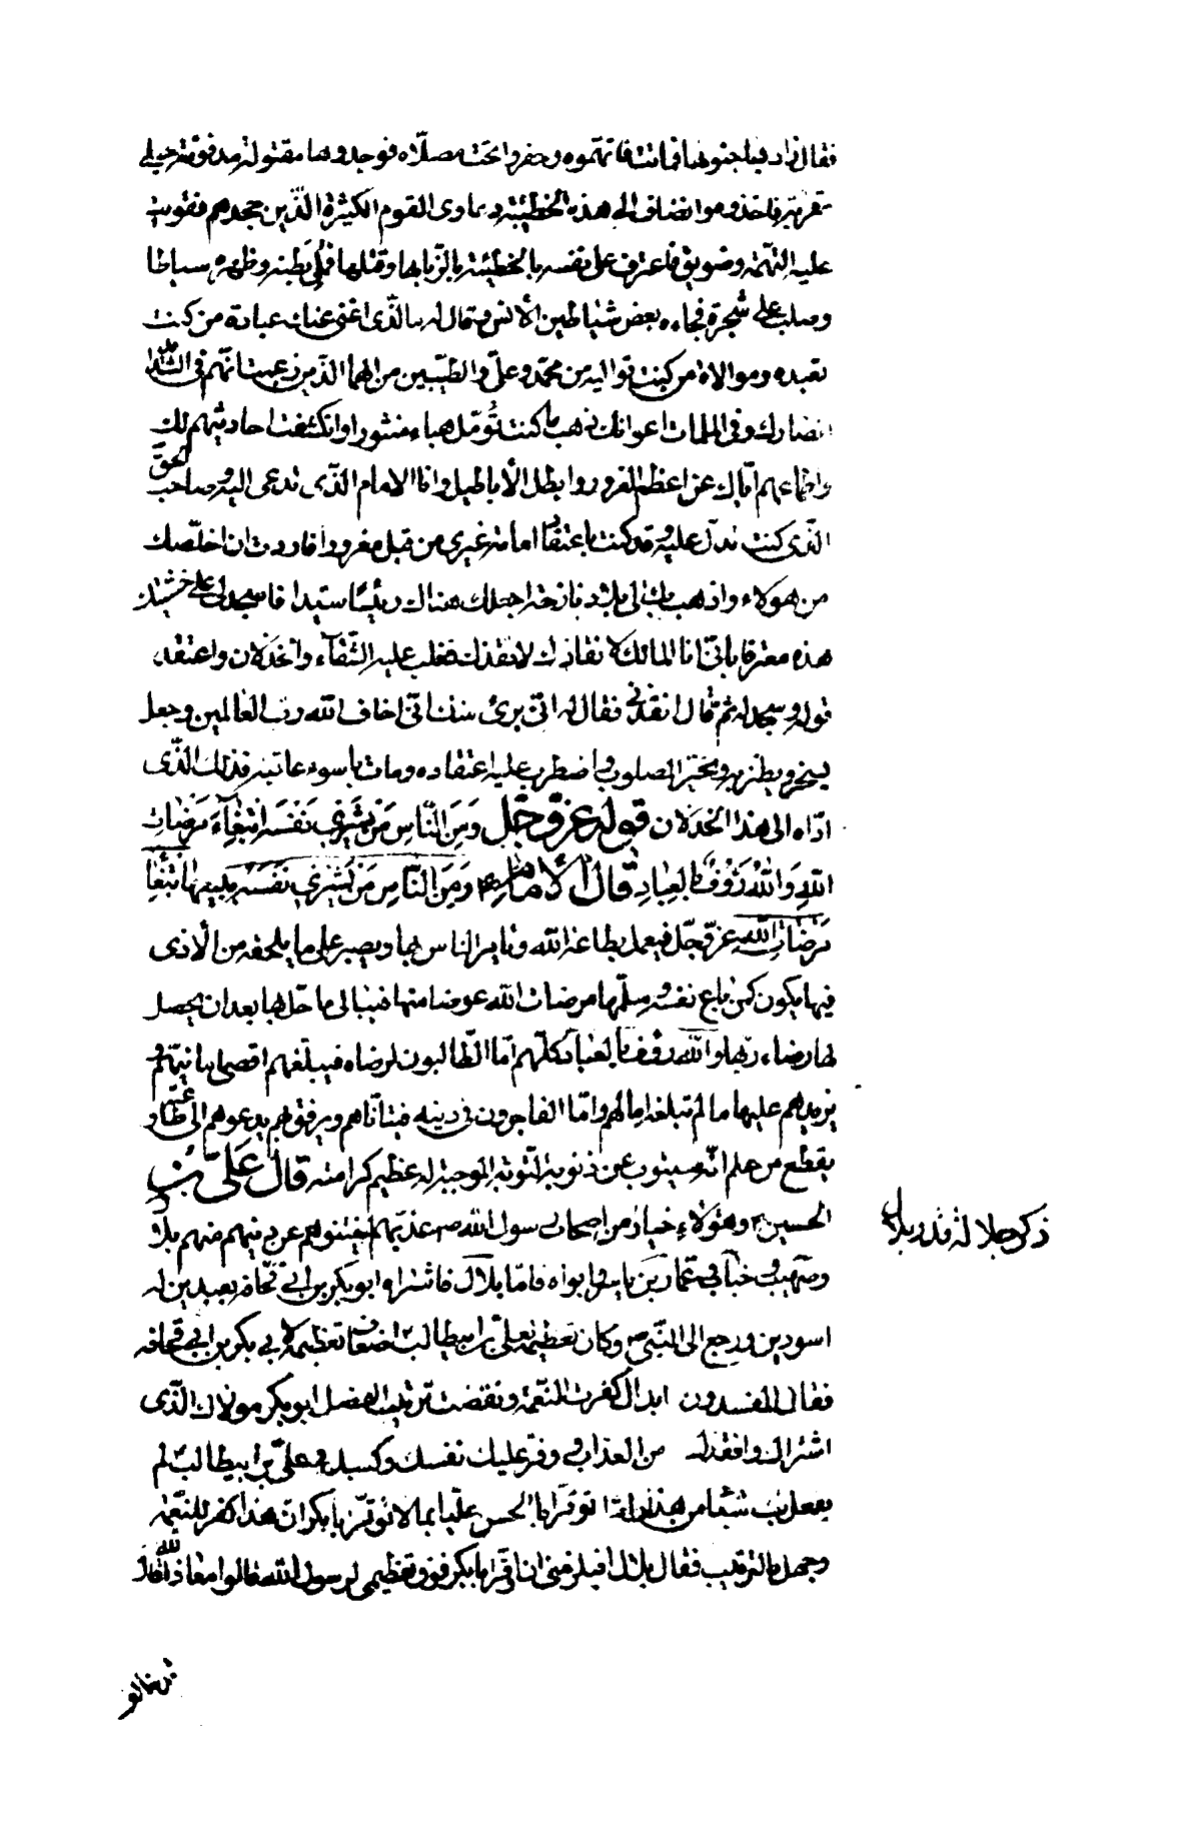 فقال زاد فيها جنونها فماتت فاتهموه وحفروا تحت مصلاه فوجدوها مقتولة مدفونة حبلى
مقربة فاخذوه وانضاف الى هذه الخطيئة دعاوى القوم الكثيرة الذين جحدهم فقويت
عليه التهمة وضويق فاعترف على نفسه بالخطيئة بالزنا بها وقتلها فملئ بطنه وظهره سياطا
وصلب على شجرة فجاءه بعض شياطين الأنس وقال له ما الذى اغنى عنك عبادة من كنت
تعبده وموالاة من كنت تواليه من محمد وعلى والطيبين من الهما الذين زعمت انهم فى الشدائد
انصارك وفى الملمات اعوانك ذهب ما كنت تؤمل هباء منثورا وانكشفت احاديثهم لك
واطماعهم اياك عن اعظم الغرور وابطل الأباطيل وانا الامام الذى تدعى اليه وصاحب الحق
الذى كنت تدل عليه وقد كنت باعتقاد امامة غيرى من قبل مغرورا فاردت ان اخلصك
من هؤلاء واذهب بك الى بلاد نازحة واجعلك هنالك رئيسا سيدا فاسجد لى على خشبتك
هذه معترفا بانى انا المالك لانقاذك لانقذك فغلب عليه الشقاء والخذلان واعتقد
قوله وسجد له ثم قال انقذنى فقال له انى برئ منك انى اخاف الله رب العالمين وجعل
يسخر ويطنز به وتحير المصلوب واضطرب عليه اعتقاده ومات باسوء عاقبة فذلك الذى
اداه الى هذا الخذلان قوله عز وجل ومن الناس من يشرى نفسه ابتغاء مرضات
الله والله رؤف بالعباد قال الامام ومن الناس من يشرى نفسه يبيعها ابتغاء
مرضات الله عز وجل فيعمل بطاعة الله ويامر الناس بها ويصبر على ما يلحقه من الأذى
فيها فيكون كمن باع نفسه وسلمها مرضات الله عوضا منها فلا يبالى ما حل بها بعد ان يحصل
لها رضاء ربها والله رؤف بالعباد كلهم اما الطالبون لرضاه فيبلغهم اقصى امانيهم و
يزيدهم عليها ما لم تبلغه امالهم واما الفاجرون فى دينه فيتأناهم ويرفق بهم يدعوهم الى طاعته ولا
يقطع من علم انه سيتوب عن ذنوبه التوبة الموجبة له عظيم كرامته قال على بن
الحسين وهؤلاء خيار من اصحاب رسول الله ص عذبهم ليفتنوهم عن دينهم منهم بلال
وصهيب وخباب وعمار بن ياسر وابواه فاما بلال فاشتراه ابو بكر بن ابى قحافة بعبدين له
اسودين ورجع الى النبى ص وكان تعظيمه لعلى بن ابيطالب اضعاف تعظيمه لابى بكر بن ابى قحافه
فقال المفسدون يا بلال كفرت النعمة ونقضت ترتيب الفضل ابو بكر مولاك الذى
اشتراك وانقذك من العذاب ووفر عليك نفسك وكسبك وعلى بن ابيطالب لم
يفعل بك شيئا من هذا وانت توقر ابا الحسن عليا بما لا توقر ابا بكر ان هذا كفر للنعمة
وجهل بالترتيب فقال بلال افيلزمنى ان اوقر ابا بكر فوق توقيرى لرسول الله قالوا معاذ الله قال
ذكر جلالة قدر بلال